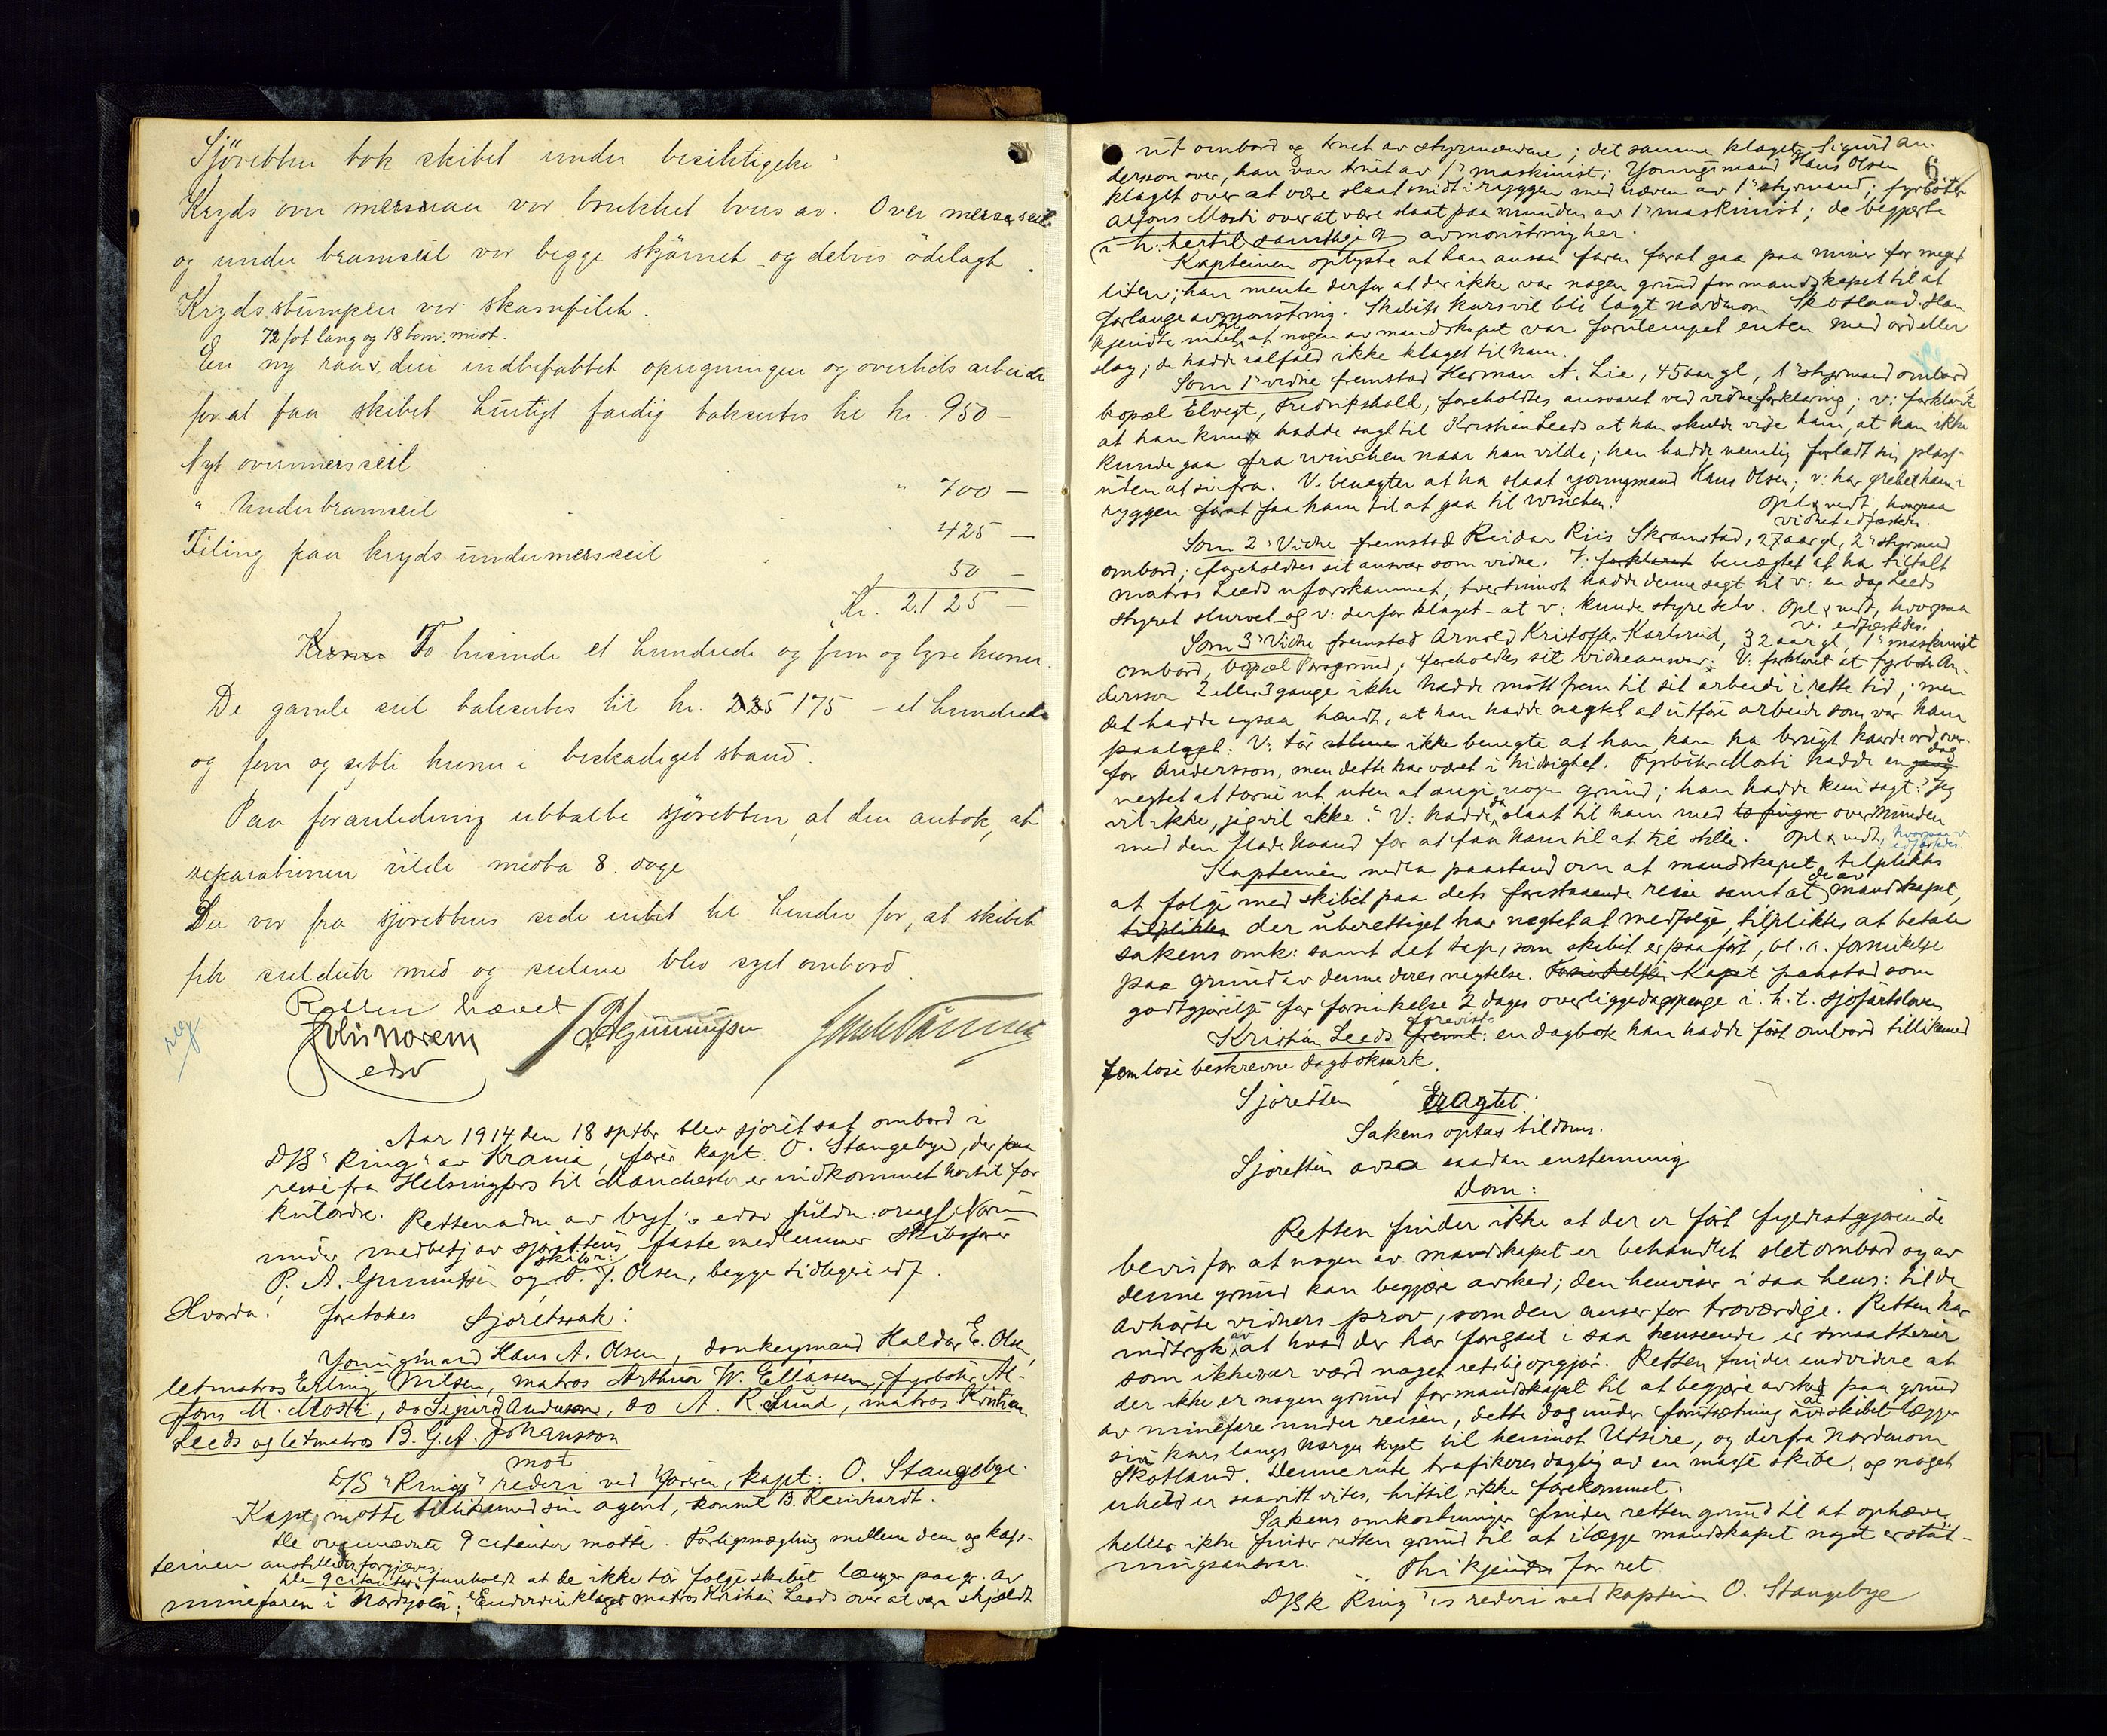 Sjöretten tok skibet under besiktigelse:
Kryds over mersraa var brukket tvers av. Over mersseil
og under bramseil var begge skjörnet og delvis ödelagt.
Krydsstumpen var skamfilet.
72 fot lang og 18 tom. midt.
En ny raa, dens indbefattet oprigningen og overtids arbeide
for at faa skibet hurtigt færdig taksertes til kr. 950 –
Nyt overmersseil " 700 –
" Underbramseil 425 –
Filing paa kryds undermersseil 50 –
Kr. 2.125 –
Kroner To tusinde et hundrede og fem og tyve kroner.
De gamle seil taksertes til kr. 225 175 – et hundrede
og fem og sytti kroner i beskadiget stand.
Paa foranledning uttalte sjöretten, at den antok, at
reparationen vilde medta 8 dage
Der var fra sjörettens side intet til hinder for, at skibet
fik seilduk med og seilene blev syet ombord.
Retten hævet
Nis Norem P. A. Gunnufsen
edsv
Aar 1914 den 18 sptbr blev sjöret sat ombord i
D/S "Ring" av Krania, förer kapt: O. Stangebye, der paa
reise fra Helsingfors til Manchester er indkommet hertil for
kulordre. Retten adm av byf:s edsv fuldm: oresagf Norem
under medbetj av sjörettens faste medlemmer skibsförer
P. A. Gunnufsen og skibsr: O. J. Olsen, begge tidligere edf.
Hvorda! foretokes Sjöretssak:
Youngmand Hans A. Olsen, donkeymand Haldor E. Olsen,
letmatros Erling Nilsen, matros Arthur W. Eliassen, fyrböter Al-
fons M. Mosti, do Sigurd Andersson, do A. R. Lund, matros Kristian
Leeds og letmatros B. G. A. Johansson
mot
D/S "Ring"s rederi ved föreren, kapt: O. Stangebye.
Kapt: mötte tillikemed sin agent, konsul B. Reinhardt.
De ovennævnte 9 citanter mötte. Forligsmægling mellem dem og kap-
teinen anstilledes forgjæves.
De 9 citanter foreholdt at de ikke tör fölge skibet længer paa gr. av
minefaren i Nordsjöen; Endvidere klaget matros Kristian Leeds over at være skjældt
6
ut ombord og truet av styrmændene; det samme klaget Sigurd An-
dersson over, han var truet av 1ste maskinist; Youngmand Hans Olsen
klaget over at være slaat midt i ryggen med næven av 1ste styrmand; fyrböter
Alfons Mosti over at være slaat paa munden av 1ste maskinist; de begjærte
i h. hertil samtlige 9 avmönstring her.
Kapteinen oplyste at han ansaa faren forat gaa paa miner for meget
liten; han mente derfor at der ikke var nogen grund for mandskapet til at
forlange avmönstring. Skibets kurs vil bli lagt nordenom Skotland. Han
kjendte intet til at nogen av mandskapet var fornærmet enten med ord eller
slag; de hadde ialfald ikke klaget til ham.
Som 1ste vidne fremstod Herman A. Lie, 45 aar gl, 1ste styrmand ombord,
bopæl Elvegt, Fredrikshald, foreholdtes ansvaret ved vidneforklaring; v: forklarte
at han kun hadde sagt til Kristian Leeds at han skulde vise ham, at han ikke
kunde gaa fra winchen naar han vilde; han hadde nemlig forladt sin plass
uten at si fra. V: benegter at ha slaat youngmand Hans Olsen; v: har grebet ham i
ryggen forat faa ham til at gaa til winchen. Opl & vedt, hvorpaa
vidnet edfæstedes.
Som 2det Vidne fremstod Reidar Riis Skramstad, 27 aar gl, 2den styrmand
ombord; foreholdtes sit ansvar som vidne. V: forklaret benægtet at ha tiltalt
matros Leeds uforskammet; tvertimot hadde denne sagt til v: en dag Leeds
styret slurvet og v: derfor klaget – at v: kunde styre selv. Opl & vedt, hvorpaa
v: edfæstedes.
Som 3die Vidne fremstod Arnold Kristoffer Karlsrud, 32 aar gl, 1ste maskinist
ombord, bopæl Porsgrund; foreholdtes sit vidneansvar; V: forklaret at fyrböter An-
dersson 2 eller 3 gange ikke hadde mött frem til sit arbeide i rette tid; men
det hadde ogsaa hændt, at han hadde nægtet at utföre arbeide som var ham
paalagt. V: tör ikke benegte at han kan ha brugt haarde ord over-
for Andersson, men dette har været i hidsighet. Fyrböter Mosti hadde en gang dag
negtet at törne ut uten at angi nogen grund; han hadde kun sagt: "Jeg
vil ikke, jeg vil ikke". V: hadde da slaat til ham med to fingre over munden
med den flade haand for at faa ham til at tie stille. Opl & vedt, hvorpaa v:
edfæstedes.
Kapteinen nedla paastand om at mandskapet tilpliktes
at fölge med skibet paa dets forestaaende reise samt at de av mandskapet,
tilpliktes der uberettiget har nægtet at medfölge, tilpliktes at betale
sakens omk: samt det tap, som skibet er paafört, bl. a. forsinkelse
paa grund av denne deres negtelse. Forsinkelse Kapt paastod som
godtgjörelse for forsinkelse 2 dages overliggedagspenge i. h. t. sjöfartsloven
Kristian Leeds fremt: foreviste en dagbok han hadde fört ombord tillikemed
fem löse beskrevne dagboksark.
Sjöretten Eragtet:
Sakens optas tildoms.
Sjöretten avsa saadan enstemmig
Dom:
Retten finder ikke at der er fört fyldestgjörende
bevis for at nogen av mandskapet er behandlet slet ombord og av
denne grund kan begjære avsked; den henviser i saa hens: til de
avhörte vidners prov, som den anser for troværdige. Retten har
indtryk av at hvad der har foregaat i saa henseende er smaatterier
som ikke var værd noget retslig opgjör. Retten finder endvidere at
der ikke er nogen grund for mandskapet til at begjære avsked paa grund
av minefare under reisen, dette dog under forutsætning at skibet lægger
sin kurs langs Norges kyst til henimot Utsire, og derfra nordenom
Skotland. Denne rute trafikeres daglig av en masse skibe, og noget
uheld er saavitt vites, hittil ikke forekommet.
Sakens omkostninger finder retten grund til at ophæve,
heller ikke finder retten grund til at ilægge mandskapet noget erstat-
ningsansvar.
Thi kjendes for ret
D/sk Ring's rederi ved kaptein O. Stangebye